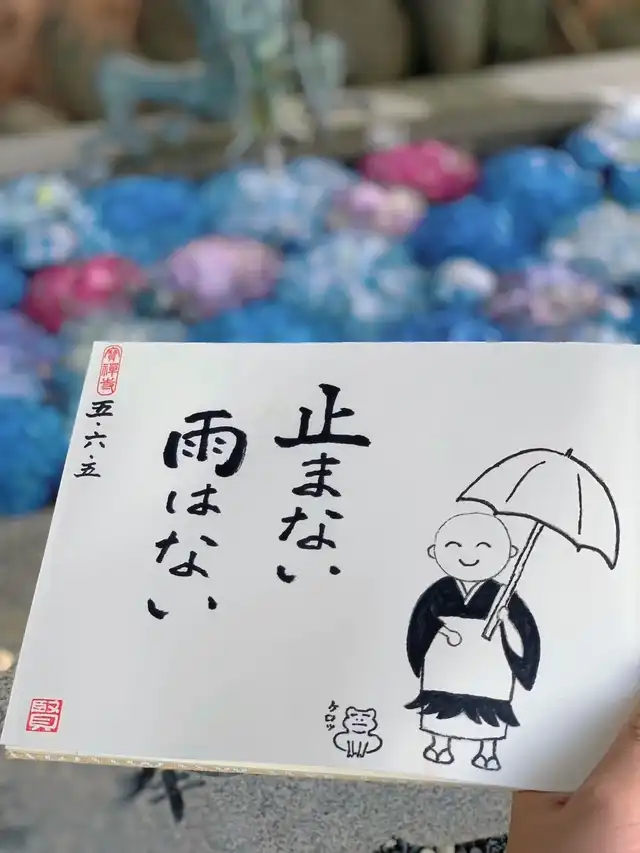 止まない
雨はない
ケロッ
五・六・五
賢